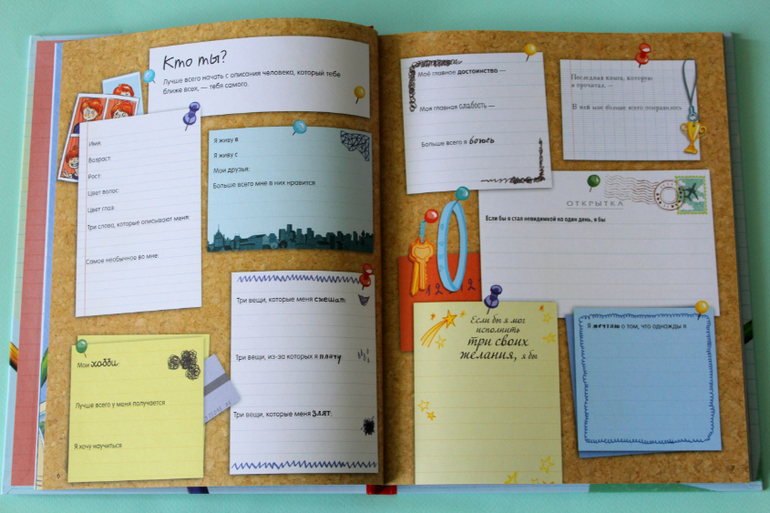 Кто ты?
Лучше всего начать с описания человека, который тебе
ближе всех, — тебя самого.
Имя:
Возраст:
Рост:
Цвет волос:
Цвет глаз:
Три слова, которые описывают меня:
Самое необычное во мне:
Я живу в
Я живу с
Мои друзья:
Больше всего мне в них нравится
Три вещи, которые меня смешат:
Три вещи, из-за которых я плачу:
Три вещи, которые меня злят:
Мои хобби:
Лучше всего у меня получается
Я хочу научиться
6
Моё главное достоинство —
Моя главная слабость —
Больше всего я боюсь
Последняя книга, которую
я прочитал, —
В ней мне больше всего понравилось
ОТКРЫТКА
Если бы я стал невидимкой на один день, я бы
Если бы я мог
исполнить
три своих
желания, я бы
Я мечтаю о том, что однажды я